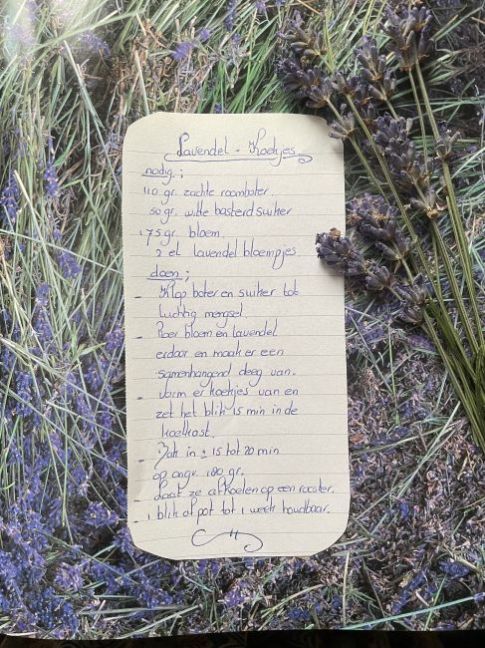 Lavendel - Koekjes
nodig;
110 gr. zachte roomboter
50 gr. witte basterdsuiker
175 gr. bloem
2 el lavendel bloempjes.
doen;
- Klop boter en suiker tot
luchtig mengsel
- Roer bloem en lavendel
erdoor en maak er een
samenhangend deeg van.
- Vorm er koekjes van en
zet het blik 15 min in de
koelkast.
- Bak in ± 15 tot 20 min
op ongv. 180 gr.
- Laat ze afkoelen op een rooster.
- in blik of pot tot 1 week houdbaar.